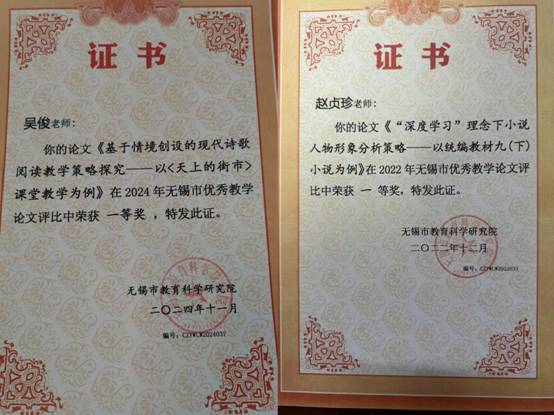 证书
吴俊老师：
你的论文《基于情境创设的现代诗歌
阅读教学策略探究——以<天上的街市>
课堂教学为例》在2024年无锡市优秀教学
论文评比中荣获 一等奖 ，特发此证。
无锡市教育科学研究院
二〇二四年十一月
编号：CZYWLW2024037
证书
赵贞珍老师：
你的论文《“深度学习”理念下小说
人物形象分析策略——以统编教材九(下)
小说为例》在2022年无锡市优秀教学论文评
比中荣获 一 等奖，特发此证。
无锡市教育科学研究院
二〇二二年十二月